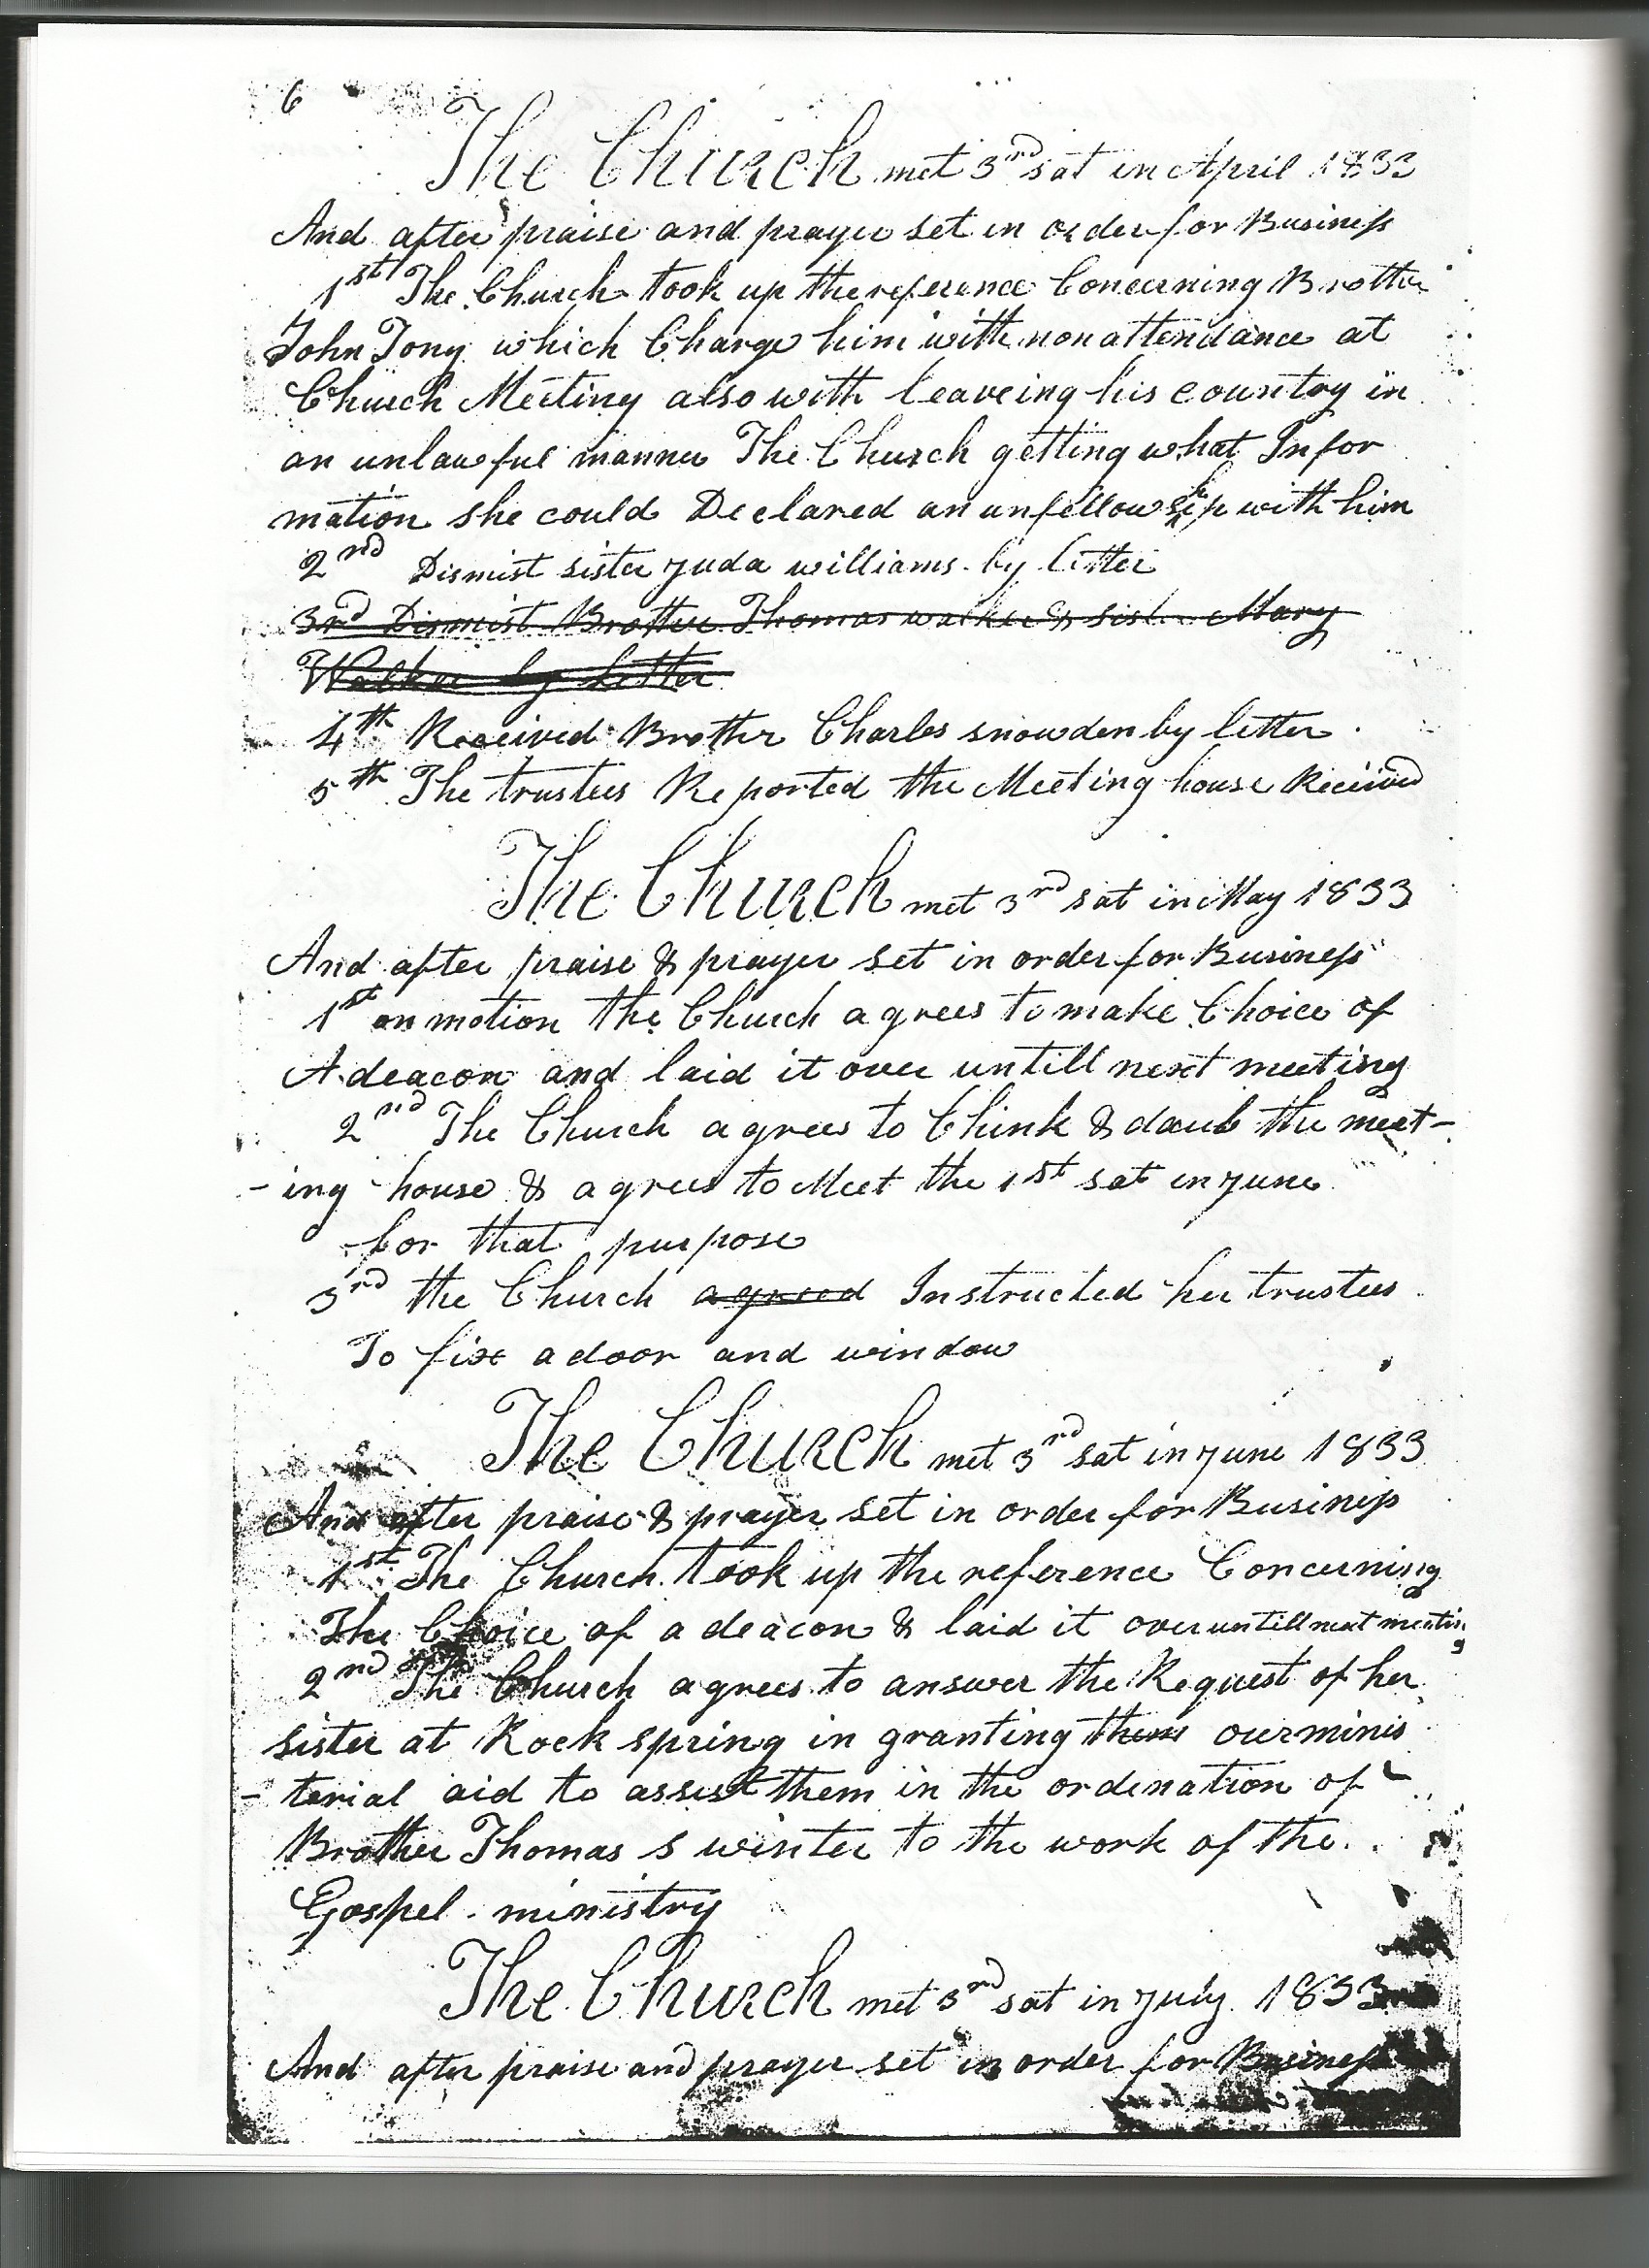 6
The Church met 3rd sat in April 1833
And after praise and prayer set in order for Business
1st The Church took up the reference Concerning Brother
John Tony which Charge him with nonattendance at
Church Meeting also with leaveing his country in
an unlawful manner The Church getting what Infor
mation she could Declared an unfellowship with him
2nd Dismist sister Juda williams by letter
3rd Dismist Brother Thomas walker & sister Mary
Walker by Letter
4th Received Brother Charles snowden by letter
5th The trustees Reported the Meeting house Received
The Church met 3rd sat in May 1833
And after praise & prayer set in order for Business
1st on motion the Church agrees to make Choice of
A deacon and laid it over untill next meeting
2nd The Church agrees to Chink & daub the meet-
-ing house & agrees to Meet the 1st sat in June
for that purpose
3rd the Church agreed Instructed her trustees
To fix a door and window
The Church met 3rd sat in June 1833
And after praise & prayer set in order for Business
1st The Church took up the reference Concerning
The Choice of a deacon & laid it over untill next meeting
2nd The Church agrees to answer the Request of her
sister at Rock spring in granting them our minis
-terial aid to assist them in the ordination of
Brother Thomas S winter to the work of the
Gospel ministry
The Church met 3rd sat in July 1833
And after praise and prayer set in order for Business